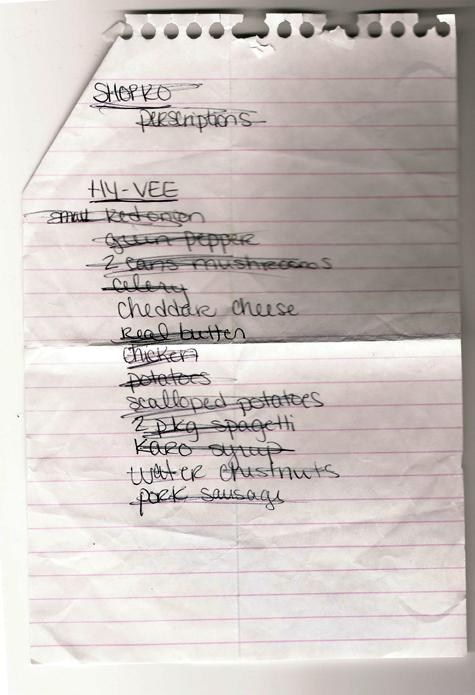 SHOPKO
perscriptions
HY-VEE
small Red onion
green pepper
2 cans mushrooms
celery
cheddar cheese
Real butter
chicken
potatoes
scalloped potatoes
2 pkg spagetti
Karo syrup
water chustnuts
pork sausage